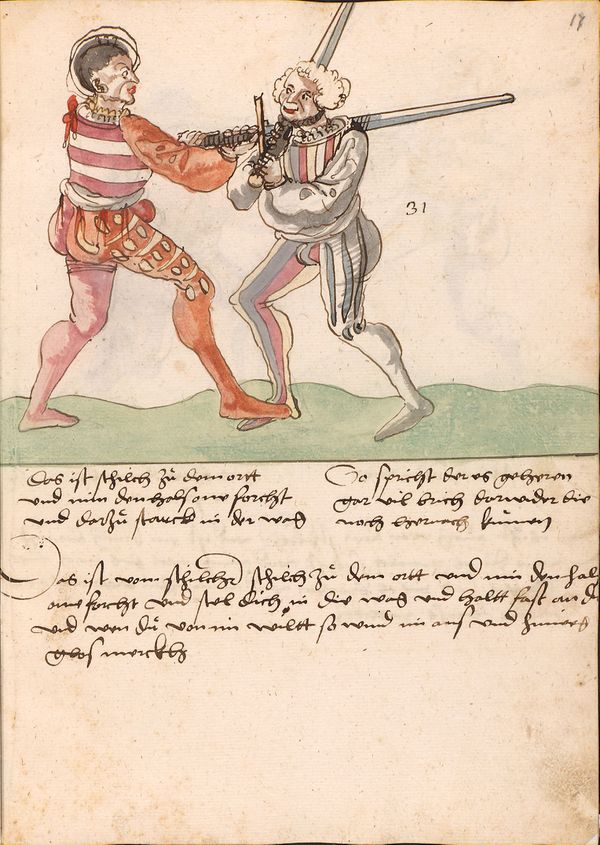 17
31
das ist schilch zů dem ortt
und nim den hals one forcht
und darzů starck in der wag
So spricht der es geheren
gar vil brich darwider die
noch hernach kumen
Das ist vom schilcher schilch zů dem ortt und nim den hals
one forcht und stel dich in die wag und haltt fast an
und wen dů von im wiltt so wind im aus und
merckh